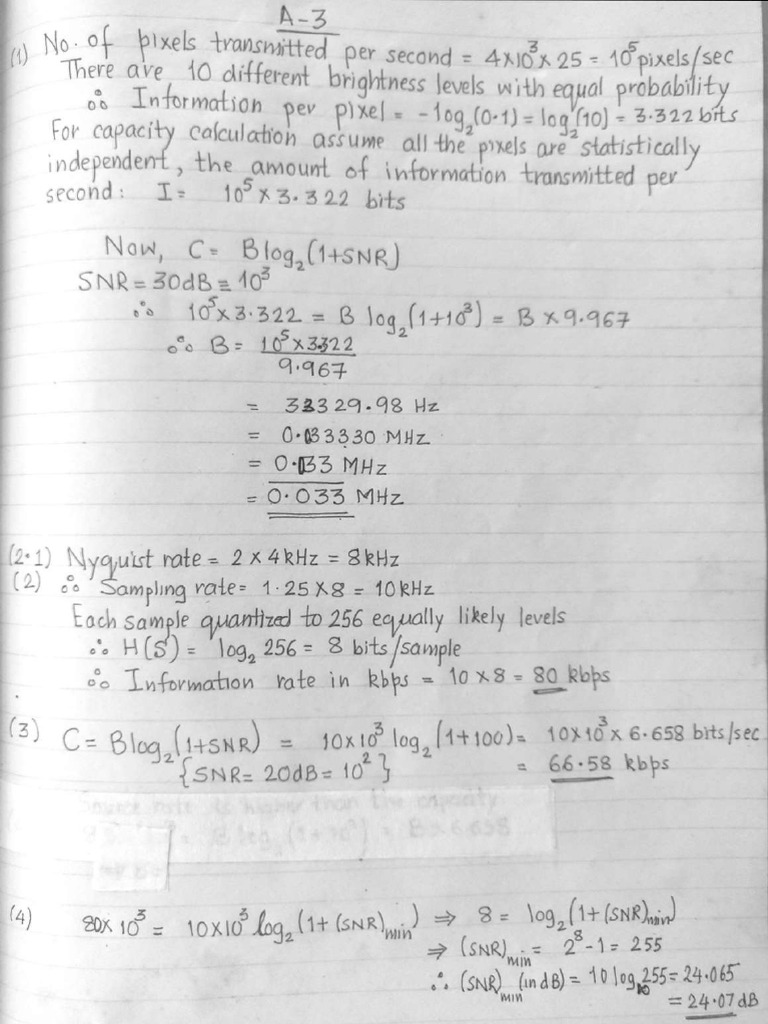 A-3
(1) No. of pixels transmitted per second = 4×10³× 25 = 10⁵ pixels/sec
There are 10 different brightness levels with equal probability
∴ Information per pixel = -log₂(0.1) = log₂(10) = 3.322 bits
For capacity calculation assume all the pixels are statistically
independent, the amount of information transmitted per
second: I = 10⁵ × 3.322 bits
Now, C = Blog₂(1+SNR)
SNR = 30dB ≡ 10³
∴ 10⁵×3.322 = B log₂(1+10³) = B × 9.967
∴ B = 10⁵×3.322
9.967
= 33329.98 Hz
= 0.033330 MHz
= 0.033 MHz
= 0.033 MHz
(2.1) Nyquist rate = 2 × 4kHz = 8kHz
(2) ∴ Sampling rate = 1.25 × 8 = 10kHz
Each sample quantized to 256 equally likely levels
∴ H(S) = log₂ 256 = 8 bits/sample
∴ Information rate in kbps = 10 × 8 = 80 kbps
(3) C = Blog₂(1+SNR) = 10×10³ log₂(1+100) = 10×10³ × 6.658 bits/sec
{SNR = 20dB = 10²} = 66.58 kbps
source rate is higher than the capacity
= B log₂(1+10²) = B×6.658
(4) 80×10³ = 10×10³ log₂(1+(SNR)min) ⇒ 8 = log₂(1+(SNR)min)
⇒ (SNR)min = 2⁸-1 = 255
∴ (SNR)min (in dB) = 10 log₁₀255 = 24.065
= 24.07 dB